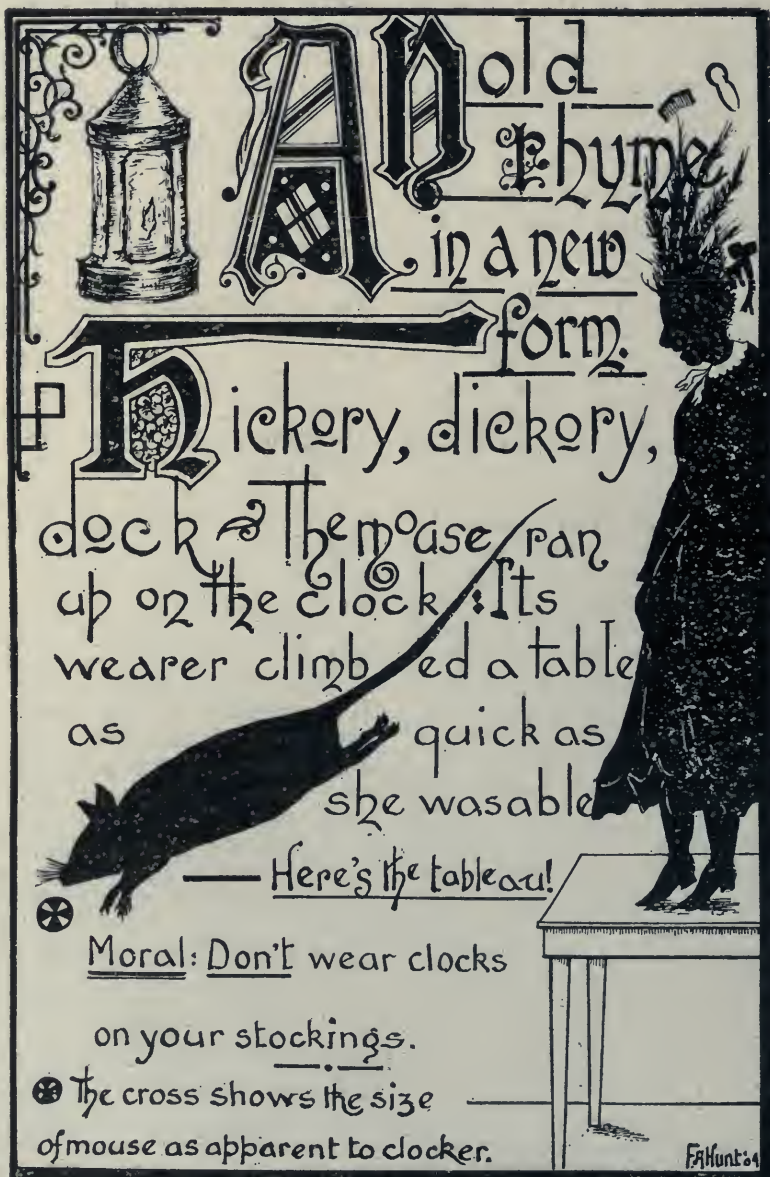 An old
rhyme
in a new
form.
Hickory, dickory,
dock The mouse ran
up on the clock : Its
wearer climbed a table
as quick as
she wasable
Here's the tableau!
Moral: Don't wear clocks
on your stockings.
The cross shows the size
of mouse as apparent to clocker.
F.A Hunt '04